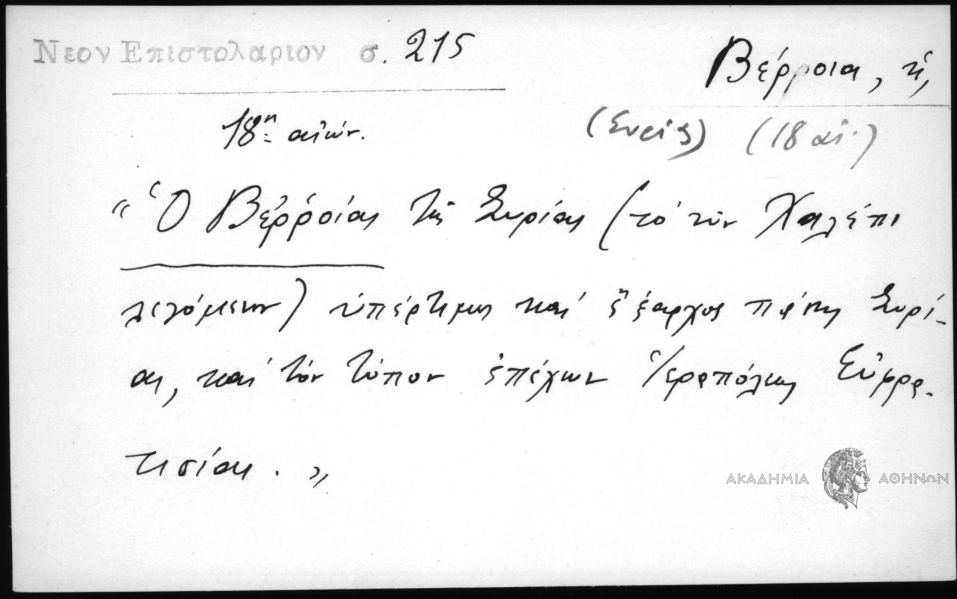 Νεον Επιστολαριον σ. 215
Βέρροια, ἡ,
18η αἰών.
(Συρίας) (18 αἰ.)
“Ὁ Βεῤῥοίας τῆς Συρίας (τὸ νῦν Χαλέπι
λεγόμενον) ὑπέρτιμος καὶ ἔξαρχος πάσης Συρί-
ας, καὶ τὸν τόπον ἐπέχων Ἱεραπόλεως Εὐφρα-
τησίας.”
ΑΚΑΔΗΜΙΑ ΑΘΗΝΩΝ